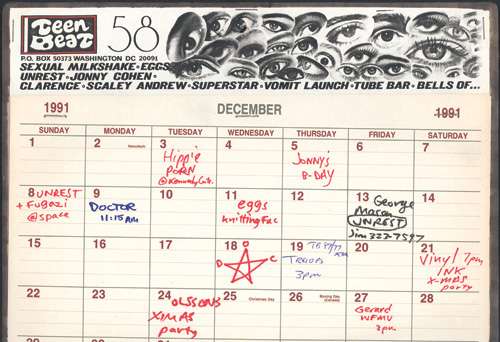 Teen Beat 58
P.O. BOX 50373 WASHINGTON DC 20091
SEXUAL MILKSHAKE•EGGS
UNREST•JONNY COHEN•
CLARENCE•SCALEY ANDREW•SUPERSTAR•VOMIT LAUNCH•TUBE BAR•BELLS OF...
1991 DECEMBER 1991
SUNDAY MONDAY TUESDAY WEDNESDAY THURSDAY FRIDAY SATURDAY
1 2 Hanukkah 3 4 5 6 7
Hippie
PORN
@Kennedy Cntr.
Jonny's
B-DAY
8 9 10 11 12 13 14
UNREST
+ Fugazi
@space
DOCTOR
11:15 AM
eggs
knitting Fac
George
Mason
UNREST
Jim 323-7597
15 16 17 18 19 20 21
D O C
3pm
Vinyl 7pm
INK
X-MAS
party
22 23 24 25 Christmas Day 26 Boxing Day (Canada) 27 28
OLSSONS
XIMAS
party
Gerard
WFMU
3pm